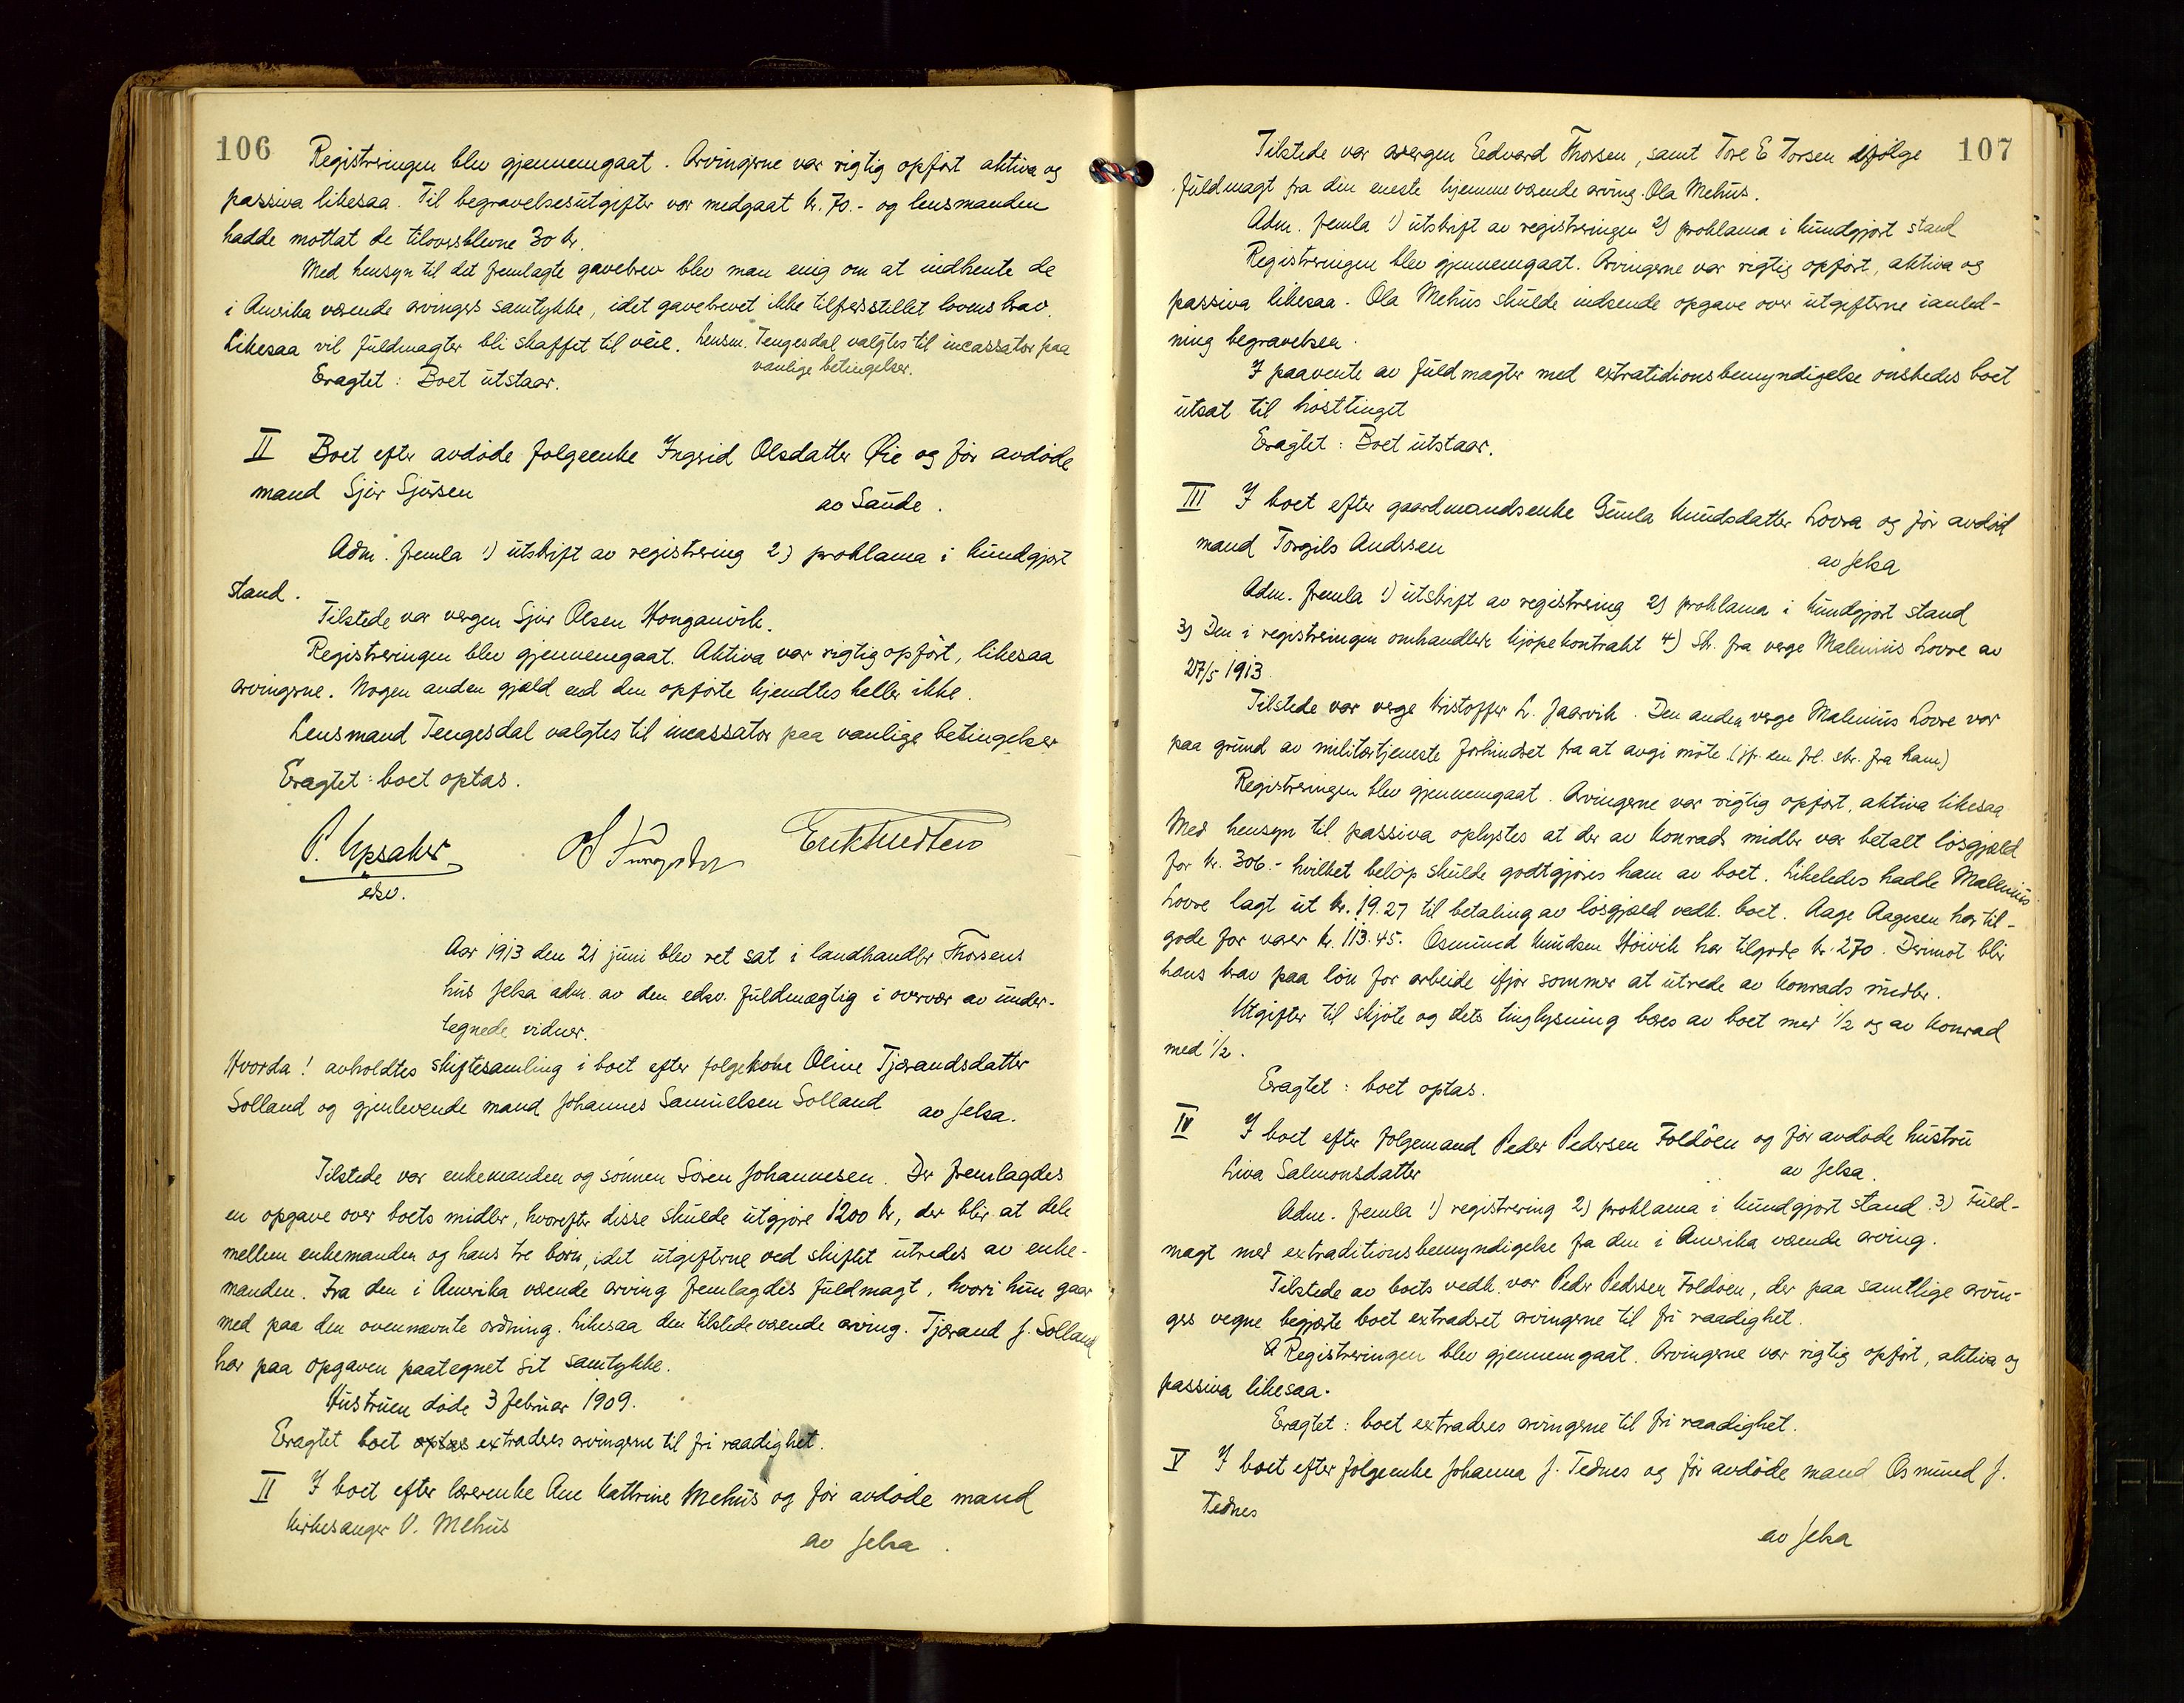 106
Registreringen blev gjennemgaat. Arvingerne var rigtig opført aktiva og
passiva likesaa. Til begravelsesutgifter var medgaat kr. 70.- og lensmanden
hadde mottat de tiloversblevne 30 kr.
Med hensyn til det fremlagte gavebrev blev man enig om at indhente de
i Amerika værende arvingers samtykke, idet gavebrevet ikke tilfredsstillet lovens krav.
Likesaa vil fuldmagter bli skaffet til veie. Lensm. Tengesdal valgtes til incassator paa
vanlige betingelser.
Eragtet: Boet utstaar.
II Boet efter avdøde folgeenke Ingrid Olsdatter Øie og før avdøde
mand Sjur Sjursen
av Saude.
Adm. fremla 1) utskrift av registrering 2) proklama i kundgjort
stand.
Tilstede var vergen Sjur Olsen Honganvik.
Registreringen blev gjennemgaat. Aktiva var rigtig opført, likesaa
arvingerne. Nogen anden gjæld end den opførte kjendtes heller ikke.
Lensmand Tengesdal valgtes til incassator paa vanlige betingelser
Eragtet: boet optas.
P. Upsaker
edsv.
Aar 1913 den 21 juni blev ret sat i landhandler Thorsens
hus Jelsa adm. av den edsv. fuldmægtig i overvær av under-
tegnede vidner.
Hvorda! avholdtes skiftesamling i boet efter folgekone Oline Tjerandsdatter
Solland og gjenlevende mand Johannes Samuelsen Solland av Jelsa.
Tilstede var enkemanden og sønnen Søren Johannesen. Der fremlagdes
en opgave over boets midler, hvorefter disse skulde utgjøre 1200 kr, der blir at dele
mellem enkemanden og hans tre børn, idet utgifterne ved skiftet utredes av enke-
manden. Fra den i Amerika værende arving fremlagdes fuldmagt, hvori hun gaar
med paa den ovennævnte ordning. Likesaa den tilstedeværende arving. Tjerand J. Solland
har paa opgaven paategnet sit samtykke.
Hustruen døde 3 februar 1909.
Eragtet boet optas extraderes arvingerne til fri raadighet.
II I boet efter lærerenke Ane Kathrine Mehus og før avdøde mand
Kirkesanger O. Mehus
av Jelsa.
107
Tilstede var vergen Eedvard Thorsen, samt Tore E Torsen ifølge
fuldmagt fra den eneste hjemmeværende arving Ola Mehus.
Adm. fremla 1) utskrift av registreringen 2) proklama i kundgjort stand
Registreringen blev gjennemgaat. Arvingerne var rigtig opført, aktiva og
passiva likesaa. Ola Mehus skulde indsende opgave over utgifterne ianled-
ning begravelsen.
I paavente av fuldmagter med extratidionsbemyndigelse ønskedes boet
utsat til høsttinget
Eragtet: Boet utstaar.
III I boet efter gaardmandsenke Gunla Knudsdatter Lovra og før avdød
mand Torgils Andersen
av Jelsa
Adm. fremla 1) utskrift av registrering 2) proklama i kundgjort stand
3) Den i registreringen omhandlede kjøpekontrakt 4) Skr. fra verge Malenius Lovre av
27/5 1913
Tilstede var verge Kristoffer L. Jaarvik. Den anden verge Malenius Lovre var
paa grund av militærtjeneste forhindret fra at avgi møte (jfr. en frl. skr. fra ham)
Registreringen blev gjennemgaat. Arvingerne var rigtig opført, aktiva likesaa
Med hensyn til passiva oplystes at der av Konrads midler var betalt løsgjæld
for kr. 306.- hvilket beløp skulde godtgjøres ham av boet. Likeledes hadde Malenius
Lovre lagt ut kr. 19.27 til betaling av løsgjæld vedk. boet. Aage Aagesen har til-
gode for varer kr. 113.45. Osmund Knudsen Høivik har tilgode kr. 270. Derimot blir
hans krav paa løn for arbeide ifjor sommer at utrede av Konrads midler.
Utgifter til skjøte og dets tinglysning bæres av boet med 1/2 og av Konrad
med 1/2.
Eragtet: boet optas.
IV I boet efter folgemand Peder Pedersen Foldøen og før avdøde hustru
Liva Salmonsdatter
av Jelsa.
Adm. fremla 1) registrering 2) proklama i kundgjort stand 3) Fuld-
magt med extraditionsbemyndigelse fra den i Amerika værende arving.
Tilstede av boets vedk. var Peder Pedersen Foldøen, der paa samtlige arvin-
gers vegne begjærte boet extraderet arvingerne til fri raadighet.
Registreringen blev gjennemgaat. Arvingerne var rigtig opført, aktiva og
passiva likesaa.
Eragtet: boet extraderes arvingerne til fri raadighet.
V I boet efter folgeenke Johanna J. Tednes og før avdøde mand Osmund J.
Tednes
av Jelsa